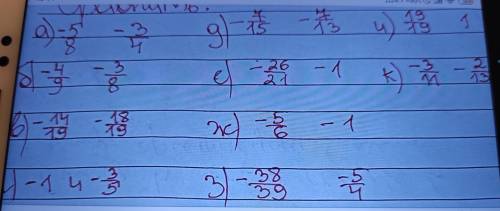 а) -5/8 -3/4 д) -7/15 -7/13 и) 19/19 1
б) -4/9 -3/8 е) -26/21 -1 к) -3/11 -2/13
в) -14/19 -18/19 ж) -5/6 -1
-1 и -3/5 з) -38/39 -5/4